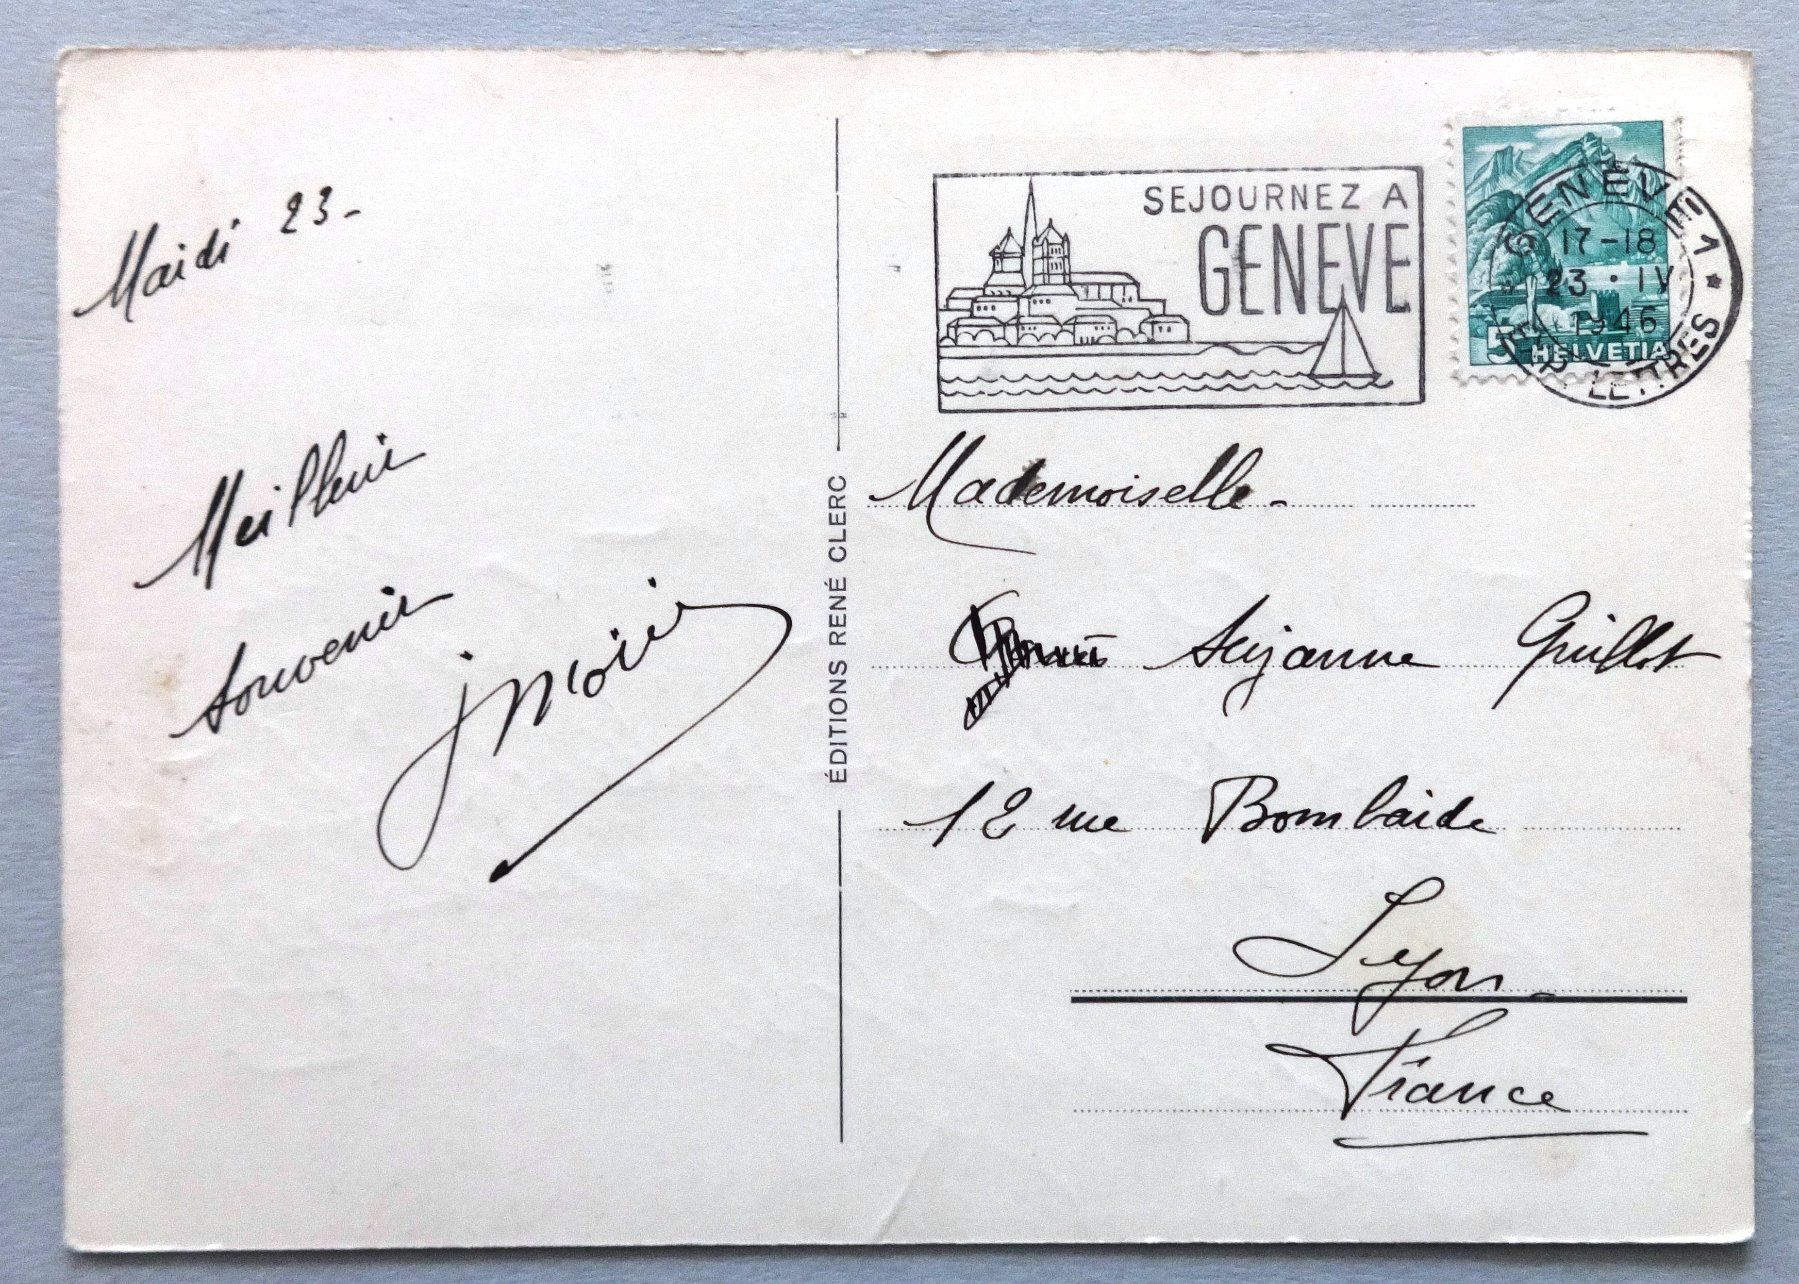 Mardi 23-
Meilleur
souvenir
ÉDITIONS RENÉ CLERC
SEJOURNEZ A
GENEVE
GENEVE 1
17-18
23 · IV
1946
LETTRES
5 HELVETIA
Mademoiselle-
Suzanne Guillot
12 rue Bombarde
Lyon-
France